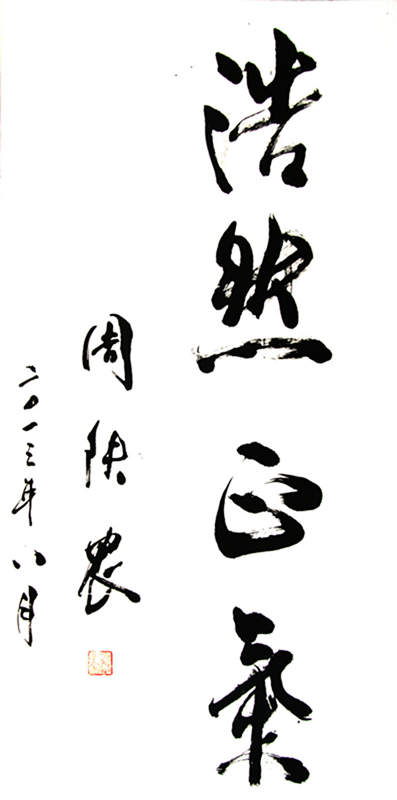 浩然正氣
周铁農
二〇一三年八月